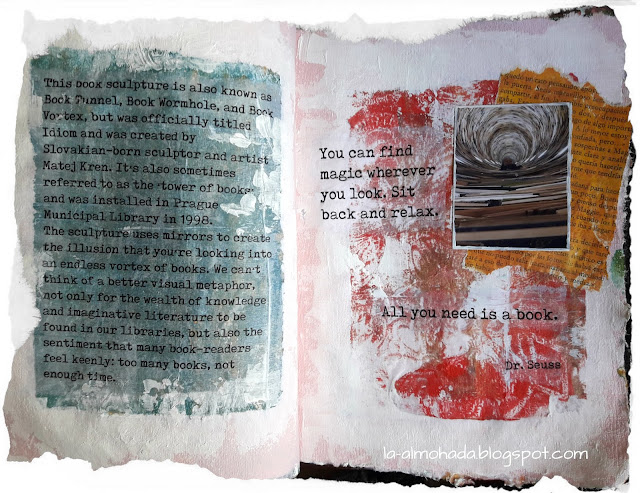 This book sculpture is also known as
Book Funnel, Book Wormhole, and Book
Vortex, but was officially titled
Idiom and was created by
Slovakian-born sculptor and artist
Matej Kren. It's also sometimes
referred to as the 'tower of books'
and was installed in Prague
Municipal Library in 1998.
The sculpture uses mirrors to create
the illusion that you're looking into
an endless vortex of books. We can't
think of a better visual metaphor,
not only for the wealth of knowledge
and imaginative literature to be
found in our libraries, but also the
sentiment that many book-readers
feel keenly: too many books, not
enough time.
You can find
magic wherever
you look. Sit
back and relax.
All you need is a book.
Dr. Seuss
la-almohada.blogspot.com